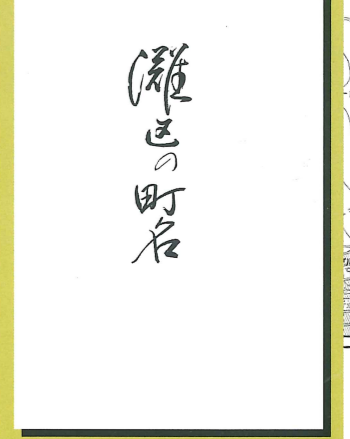 灘区の町名